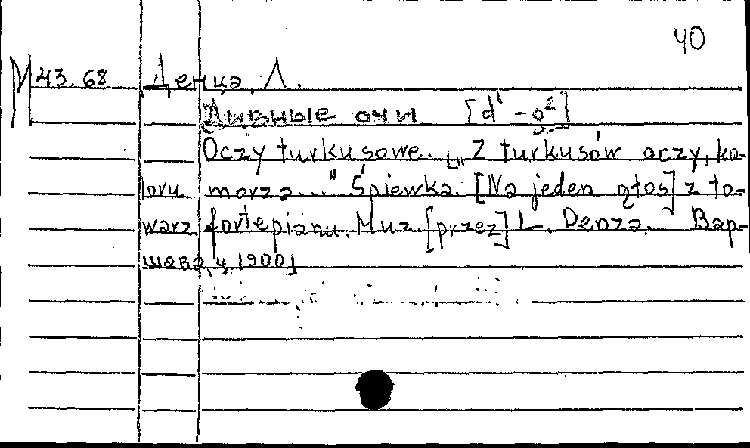 40
М 43.68 Денца, Л.
Дивные очи [d¹ - g²]
Oczy turkusowe. „Z turkusów oczy, ko-
loru morza..." Śpiewka. [Na jeden głos] z to-
warz. fortepianu. Muz. [przez] L. Denza. Вар-
шава, ц. 1900]